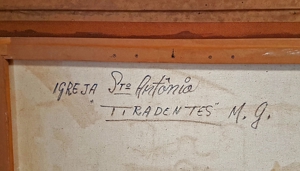 IGREJA Sto Antônio
"TIRADENTES" M. G.